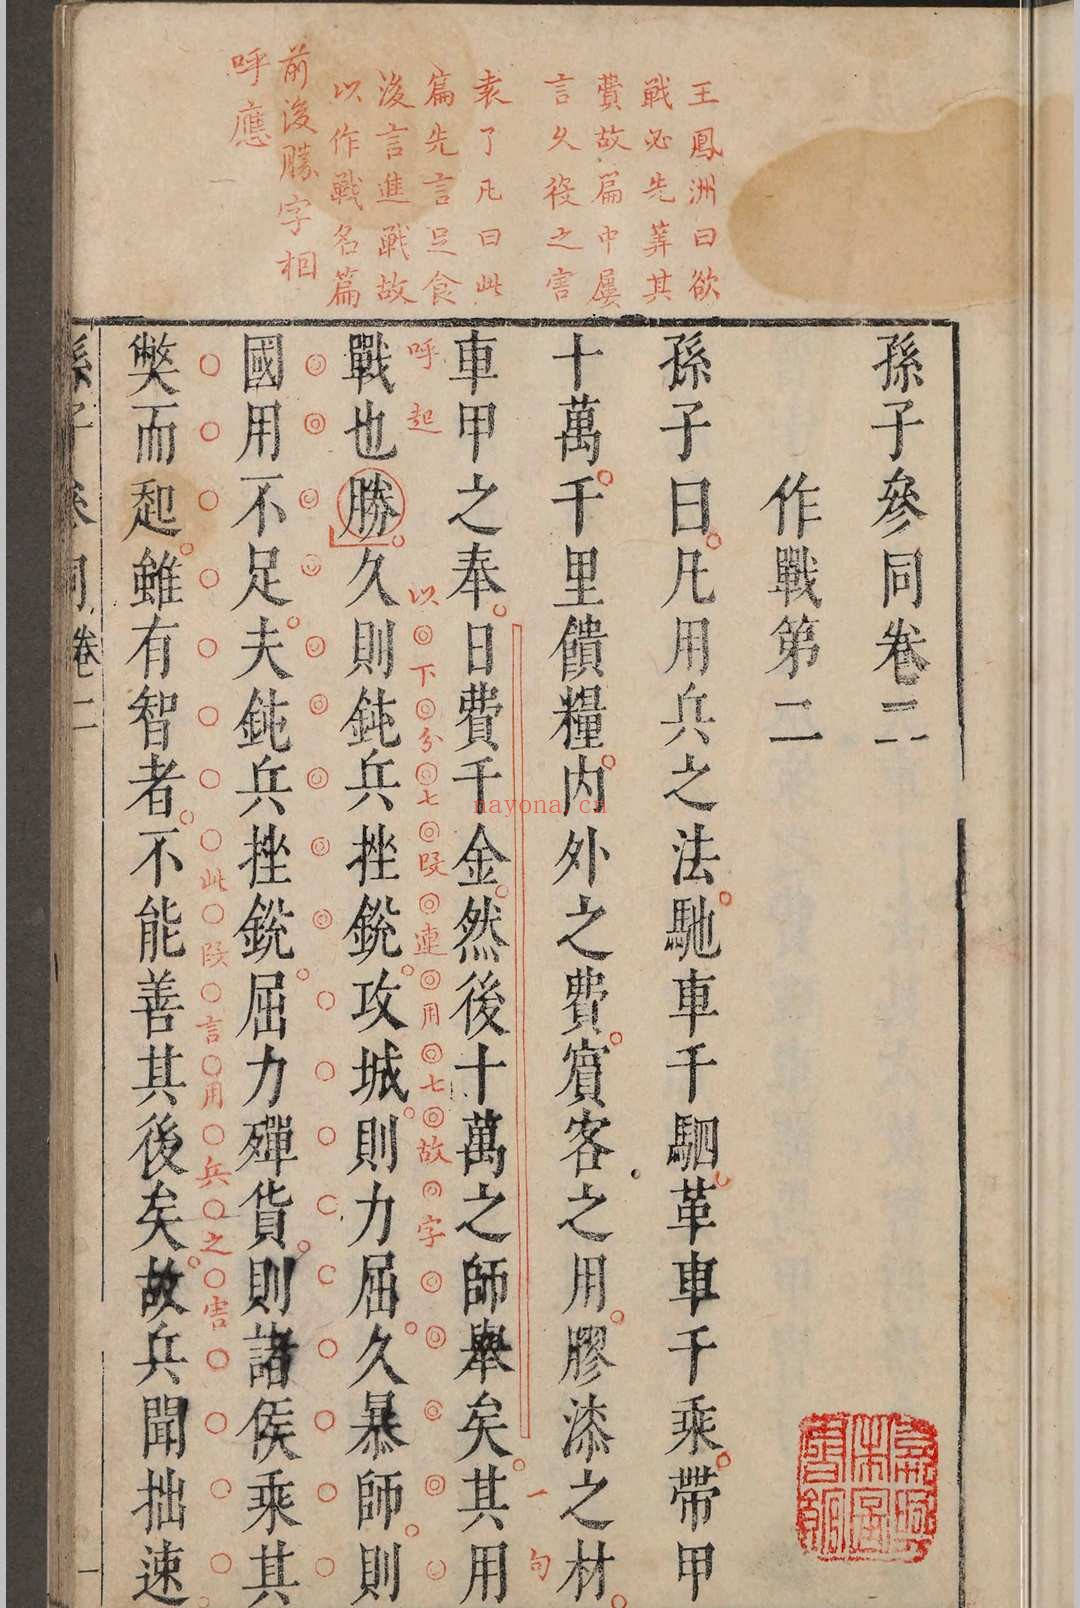 王鳳洲曰欲
戰必先筭其
費故篇中屢
言久役之害
袁了凡曰此
篇先言足食
後言進戰故
以作戰名篇
前後勝字相
呼應
孫子參同卷二
作戰第二
孫子曰凡用兵之法馳車千駟革車千乘帶甲
十萬千里饋糧內外之費賓客之用膠漆之材
一句
車甲之奉日費千金然後十萬之師舉矣其用
呼起
以下分七段連用七故字
戰也勝久則鈍兵挫銳攻城則力屈久暴師則
國用不足夫鈍兵挫銳屈力殫貨則諸侯乘其
此段言用兵之害
獘而起雖有智者不能善其後矣故兵聞拙速
孫子參同卷二
一
nayona.cn